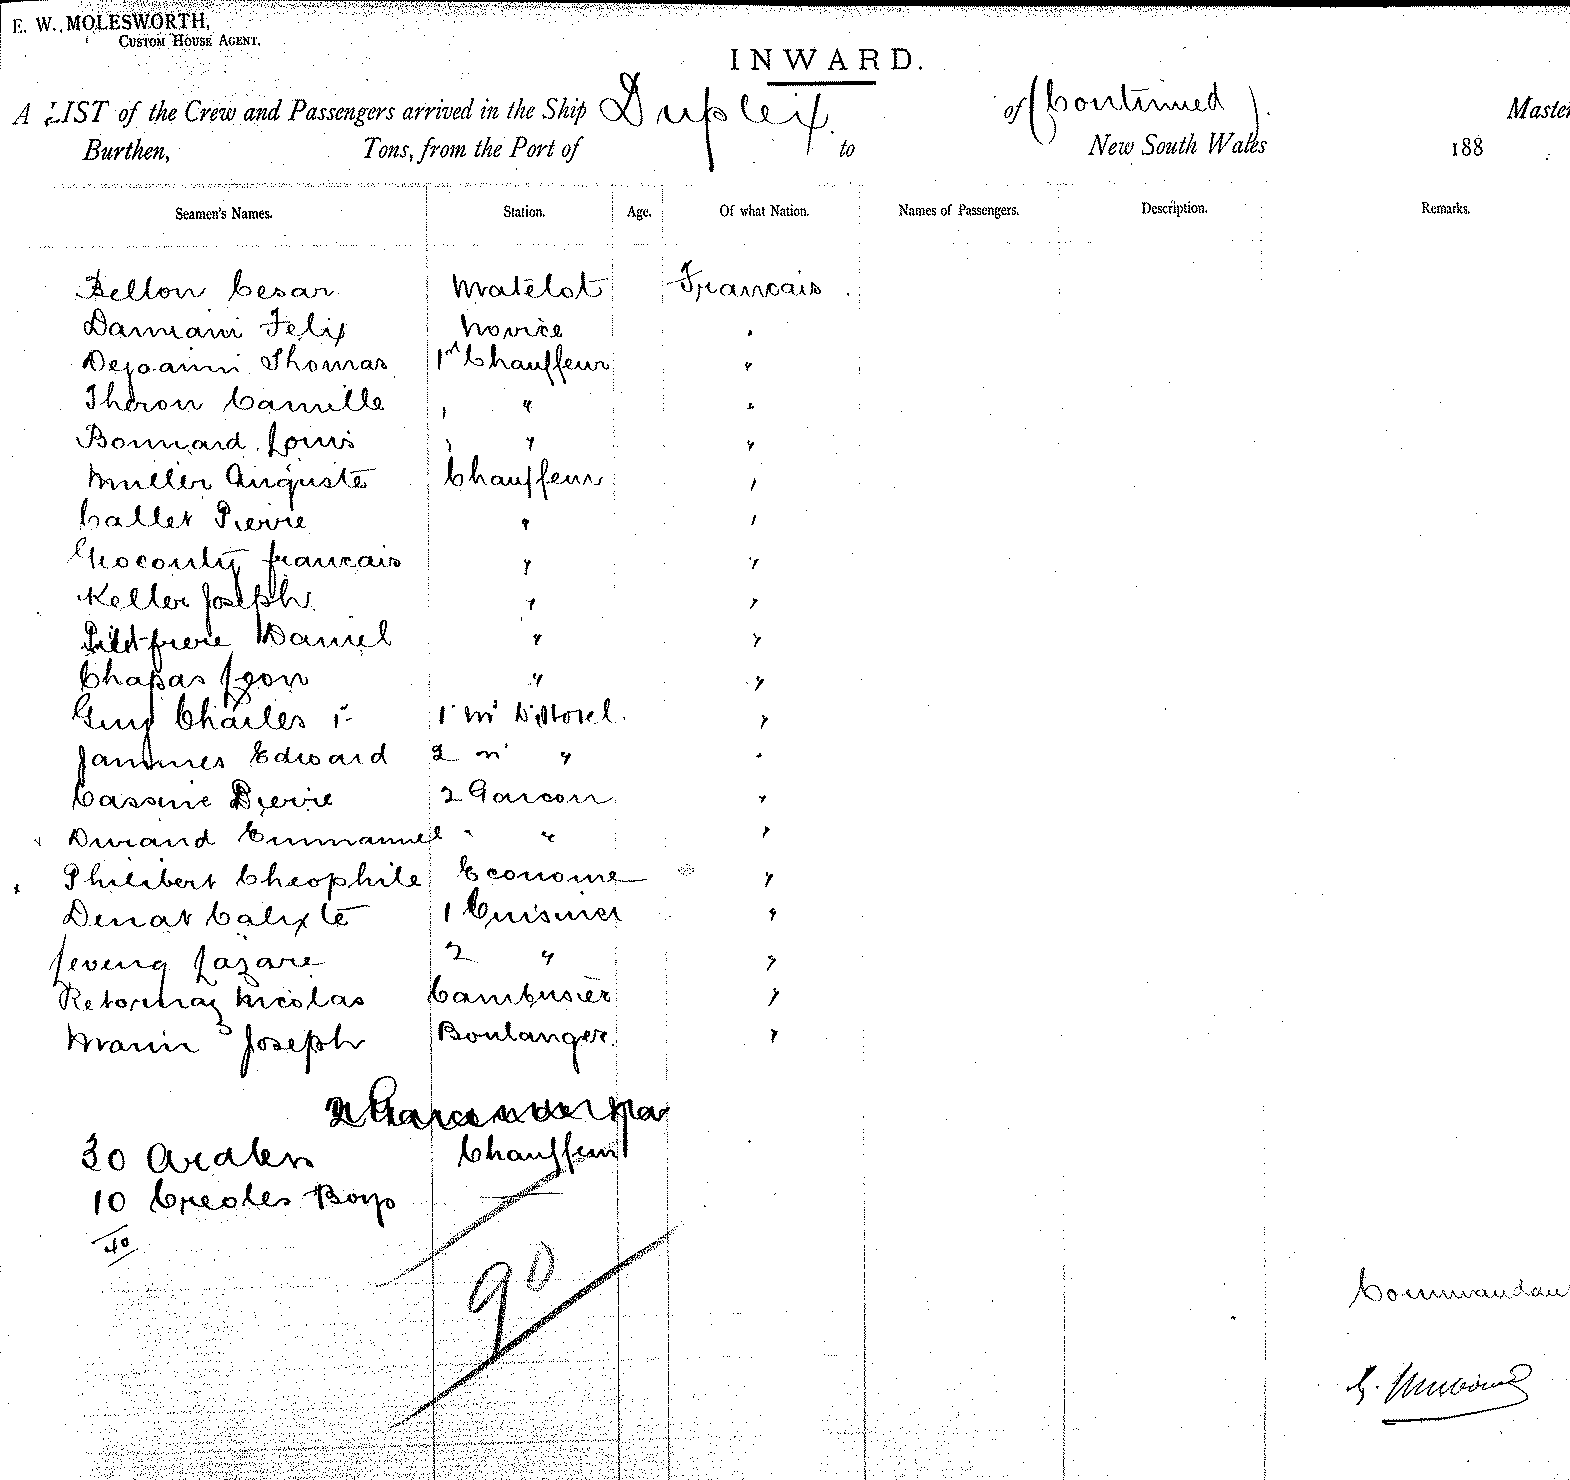 E. W. MOLESWORTH,
CUSTOM HOUSE AGENT.
INWARD.
A LIST of the Crew and Passengers arrived in the Ship Dupleix of (Continued) Master
Burthen, Tons, from the Port of to New South Wales 188
Seamen's Names. Station. Age. Of what Nation. Names of Passengers. Description. Remarks.
Bellon Cesar Matelot Francais
Damiani Felix Novice "
Thomas 1er Chauffeur "
Theron Camille " " "
Bonnard Louis " " "
Muller Auguste Chauffeur "
Callet Pierre " "
francais " "
Keller Joseph " "
Daniel " "
Chapas Leon " "
Guy Charles 1 "
Jammes Edward 2 m " "
Cassine Pierre 2 Garcon "
Durand Emmanuel " " "
Philibert Theophile Econome "
Denat Calixte 1 Cuisinier "
Lazare 2 " "
Retornaz Nicolas Cambusier "
Marin Joseph Boulanger "
30 Arabes Chauffeur
10 Creoles Boys
40
90
Commandan
G.